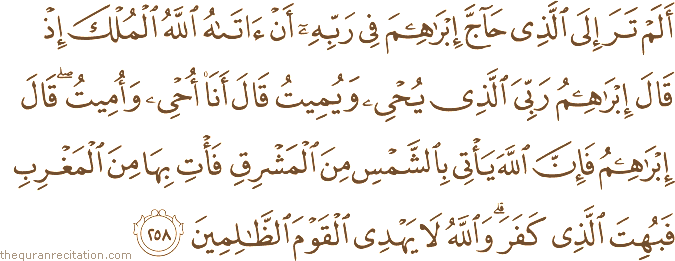 أَلَمۡ تَرَ إِلَى ٱلَّذِي حَآجَّ إِبۡرَٰهِـۧمَ فِي رَبِّهِۦٓ أَنۡ ءَاتَىٰهُ ٱللَّهُ ٱلۡمُلۡكَ إِذۡ
قَالَ إِبۡرَٰهِـۧمُ رَبِّيَ ٱلَّذِي يُحۡيِۦ وَيُمِيتُ قَالَ أَنَا۠ أُحۡيِۦ وَأُمِيتُۖ قَالَ
إِبۡرَٰهِـۧمُ فَإِنَّ ٱللَّهَ يَأۡتِي بِٱلشَّمۡسِ مِنَ ٱلۡمَشۡرِقِ فَأۡتِ بِهَا مِنَ ٱلۡمَغۡرِبِ
فَبُهِتَ ٱلَّذِي كَفَرَۗ وَٱللَّهُ لَا يَهۡدِي ٱلۡقَوۡمَ ٱلظَّٰلِمِينَ ٢٥٨
thequranrecitation.com